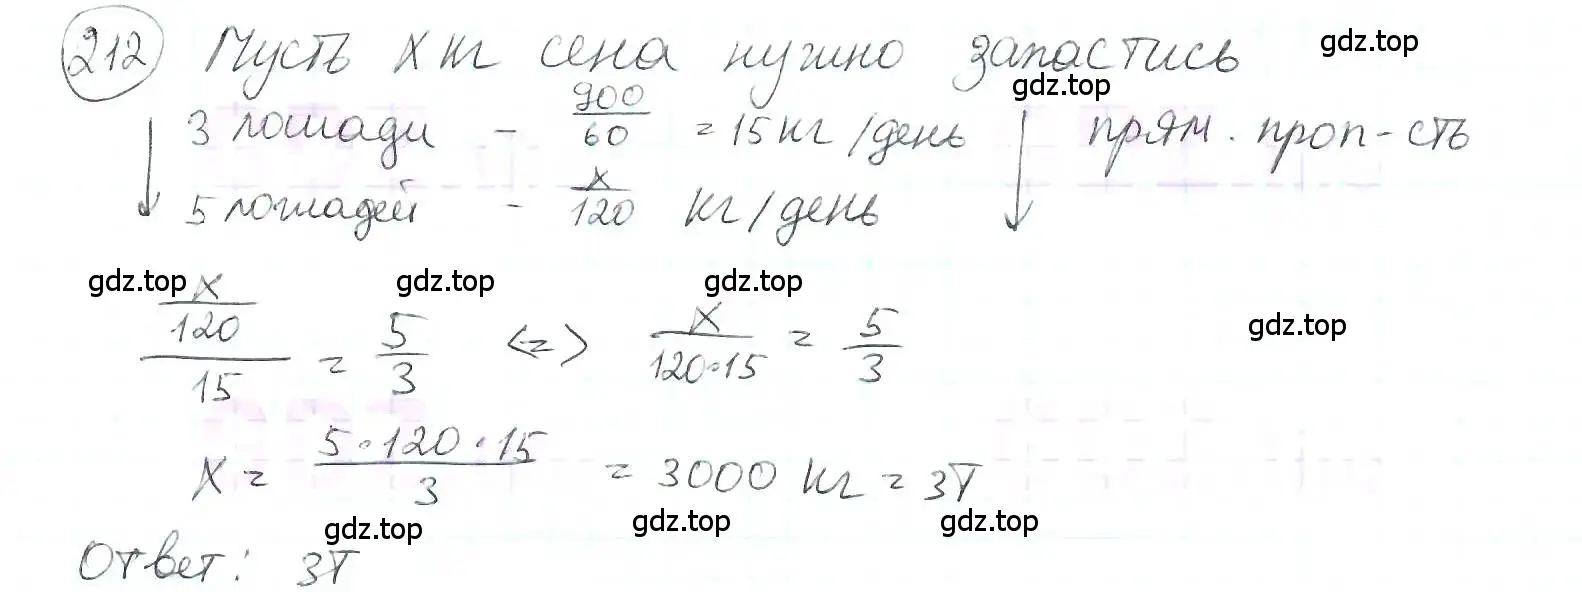 212 Пусть x кг сена нужно запастись gdz.top
gdz.top
3 лошади - 900/60 = 15 кг/день прям. проп-сть
5 лошадей - x/120 кг/день
gdz.top gdz.top gdz.top
(x/120)/15 = 5/3 <=> x/(120·15) = 5/3 gdz.top
x = (5·120·15)/3 = 3000 кг = 3т
gdz.top gdz.top gdz.top
Ответ: 3т